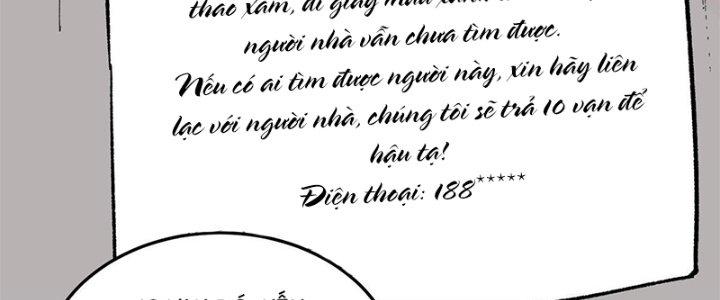 thao xám, đi giày màu xanh
người nhà vẫn chưa tìm được.
Nếu có ai tìm được người này, xin hãy liên
lạc với người nhà, chúng tôi sẽ trả 10 vạn để
hậu tạ!
Điện thoại: 188*****